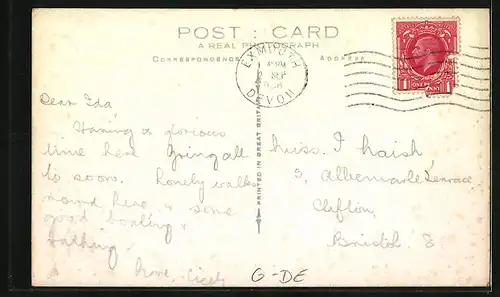 POST : CARD
A REAL PHOTOGRAPH
CORRESPONDENCE
ADDRESS
EXMOUTH
SEP
DEVON
1 ONE PENNY 1
PRINTED IN GREAT BRITAIN
Dear Ida
Having a glorious
time here
to soon. Lovely walks
round here & some
good boating &
bathing.
love, Cicely
Miss. I
5, Albemarle Terrace
Clifton,
Bristol. 8
G-DE